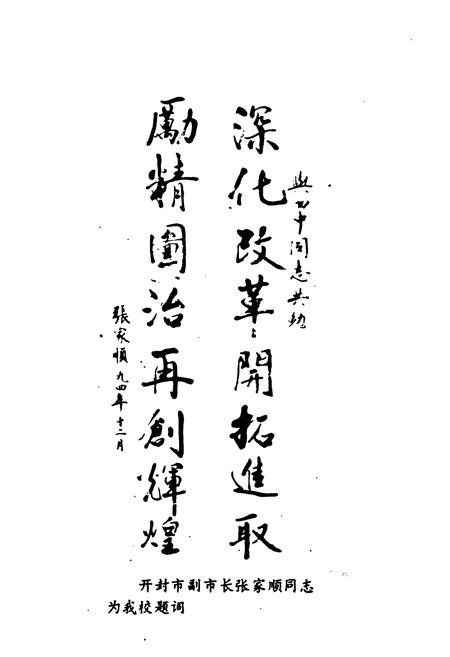 與五中同志共勉
深化改革開拓進取
勵精圖治再創輝煌
張家順九四年十二月
开封市副市长张家顺同志
为我校题词